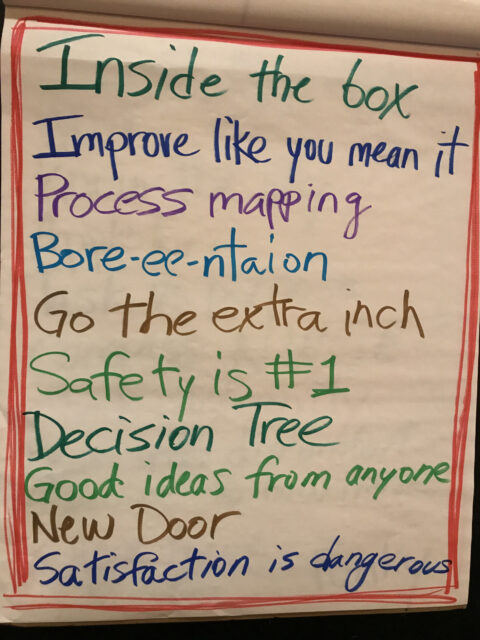 Inside the box
Improve like you mean it
Process mapping
Bore-ee-ntaion
Go the extra inch
Safety is #1
Decision Tree
Good ideas from anyone
New Door
Satisfaction is dangerous